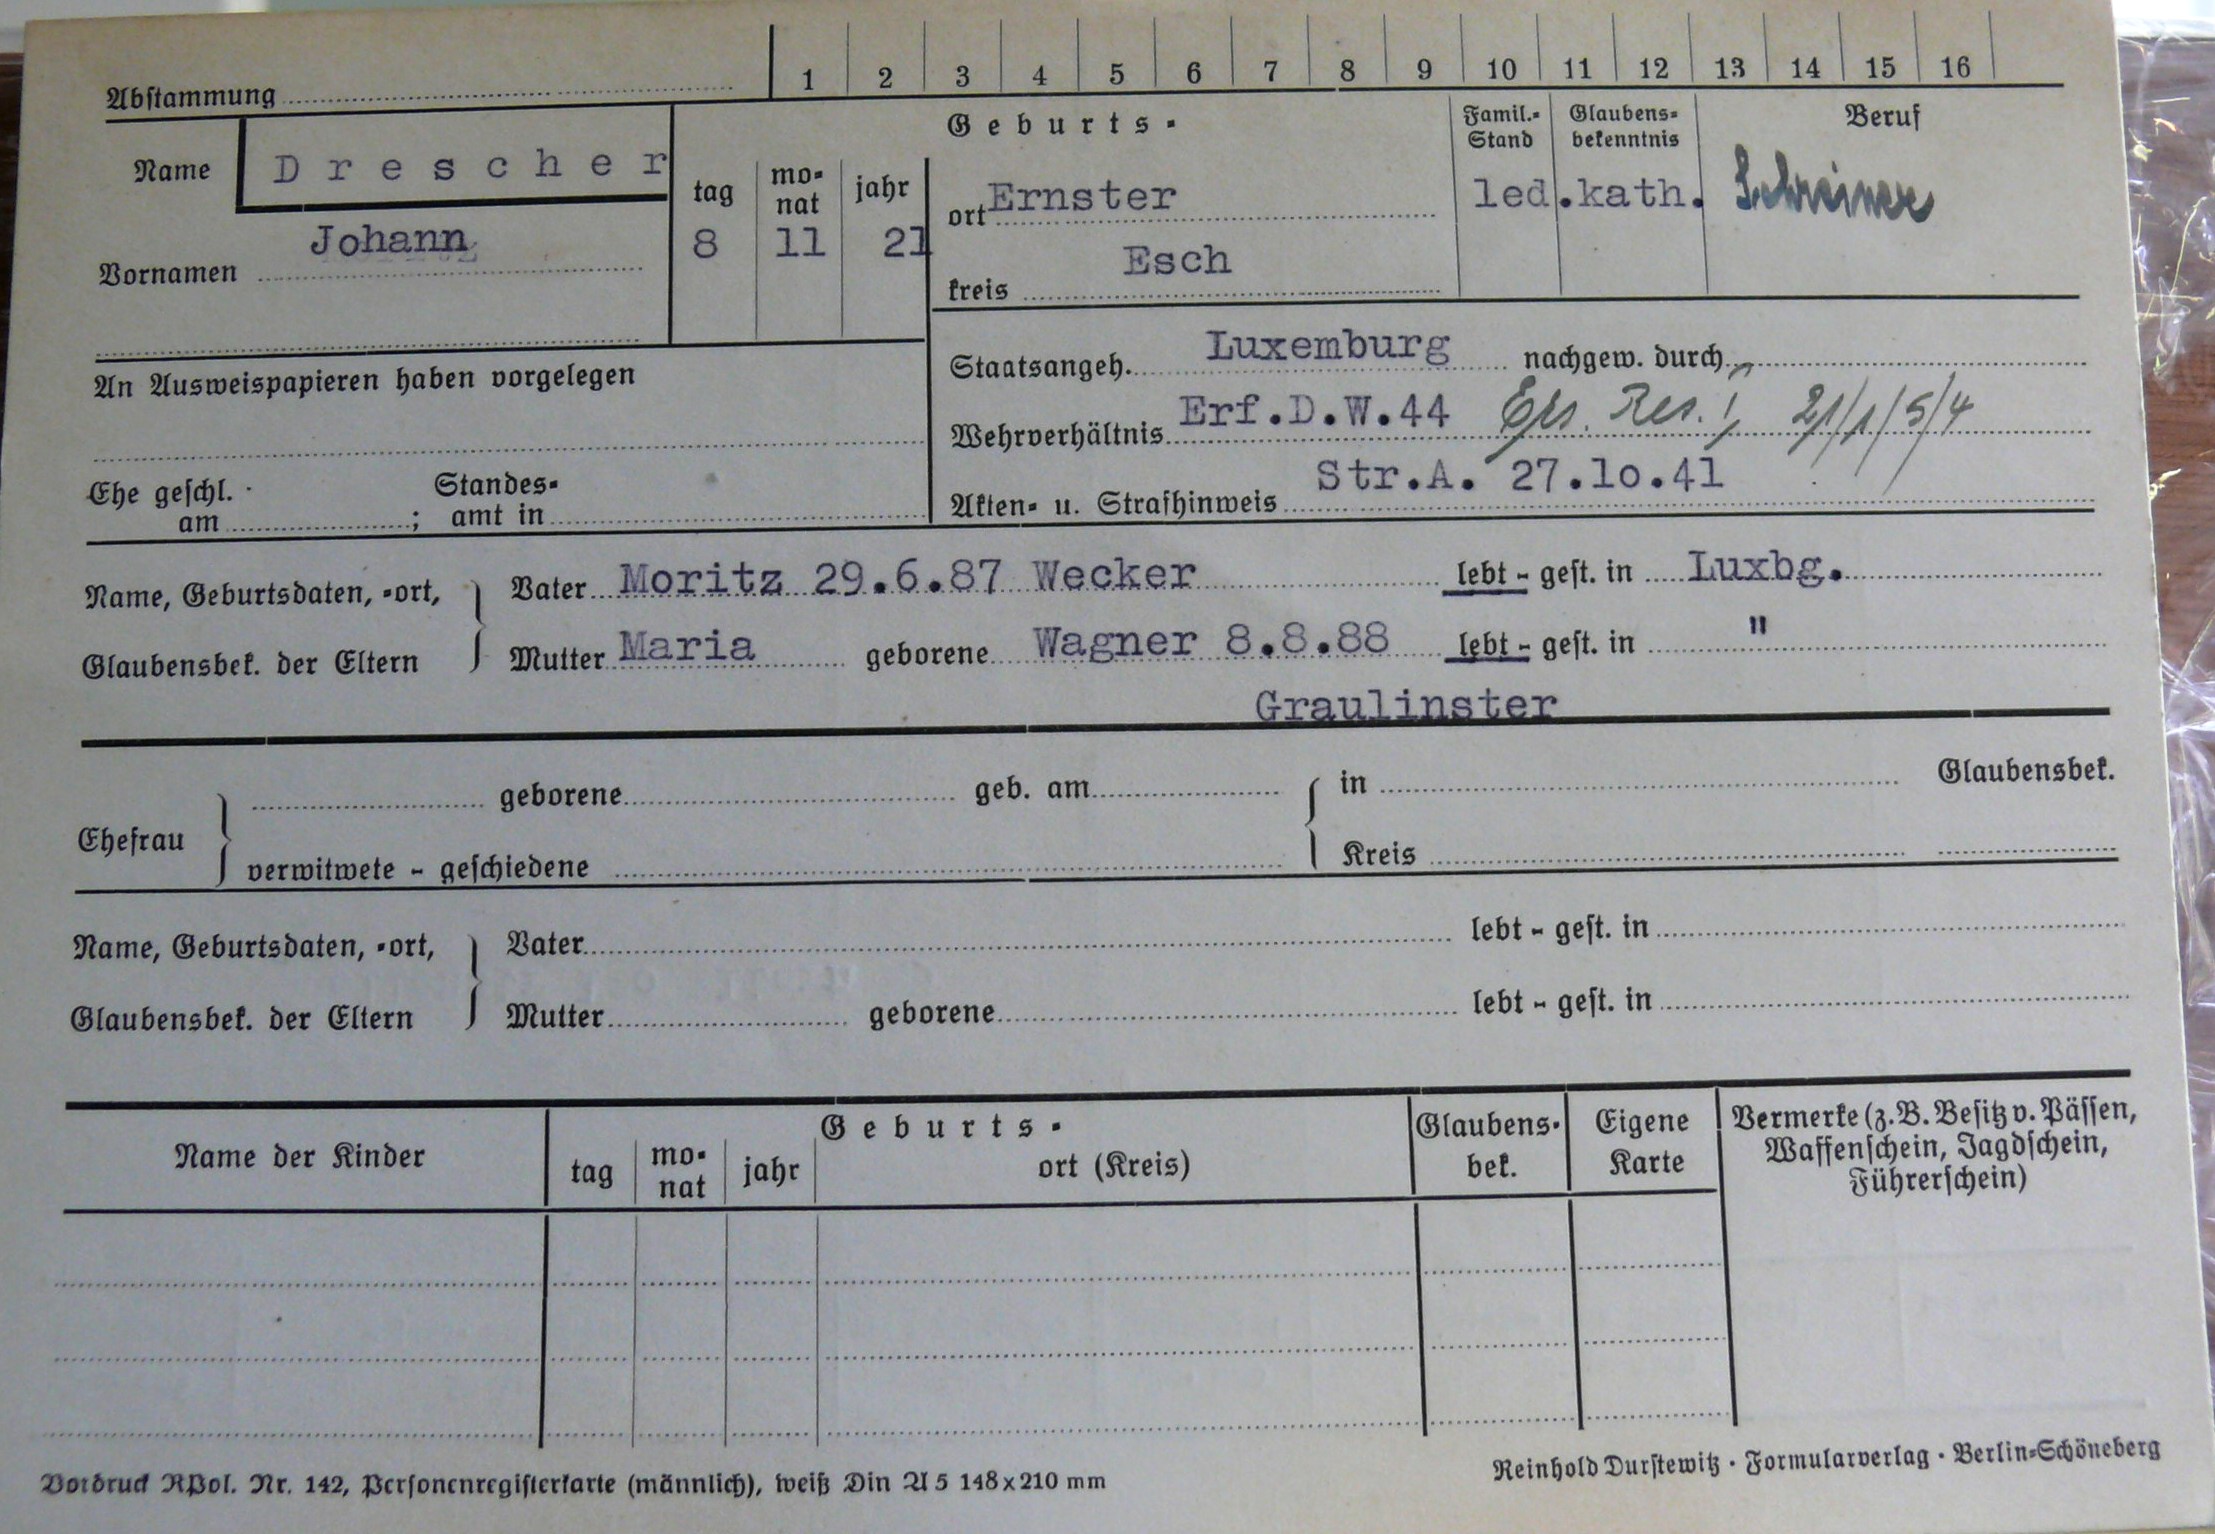 Abstammung 1 2 3 4 5 6 7 8 9 10 11 12 13 14 15 16
Name Drescher
Vornamen Johann
Geburts-
tag monat jahr
8 11 21
ort Ernster
kreis Esch
Famil.-Stand
led.
Glaubensbekenntnis
kath.
Beruf
Schreiner
An Ausweispapieren haben vorgelegen
Staatsangeh. Luxemburg nachgew. durch
Wehrverhältnis Erf.D.W.44 Ers. Res. I, 21/1/5/4
Akten- u. Strafhinweis Str.A. 27.10.41
Ehe geschl. am ; Standesamt in
Name, Geburtsdaten, -ort, Glaubensbek. der Eltern
Vater Moritz 29.6.87 Wecker lebt - gest. in Luxbg.
Mutter Maria geborene Wagner 8.8.88 lebt - gest. in "
Graulinster
Ehefrau
geborene geb. am in Glaubensbek.
verwitwete - geschiedene Kreis
Name, Geburtsdaten, -ort, Glaubensbek. der Eltern
Vater lebt - gest. in
Mutter geborene lebt - gest. in
Name der Kinder
Geburts-
tag monat jahr ort (Kreis)
Glaubensbek.
Eigene Karte
Vermerke (z.B. Besitz v. Pässen,
Waffenschein, Jagdschein,
Führerschein)
Vordruck RPol. Nr. 142, Personenregisterkarte (männlich), weiß Din A 5 148x210 mm
Reinhold Durstewitz · Formularverlag · Berlin-Schöneberg